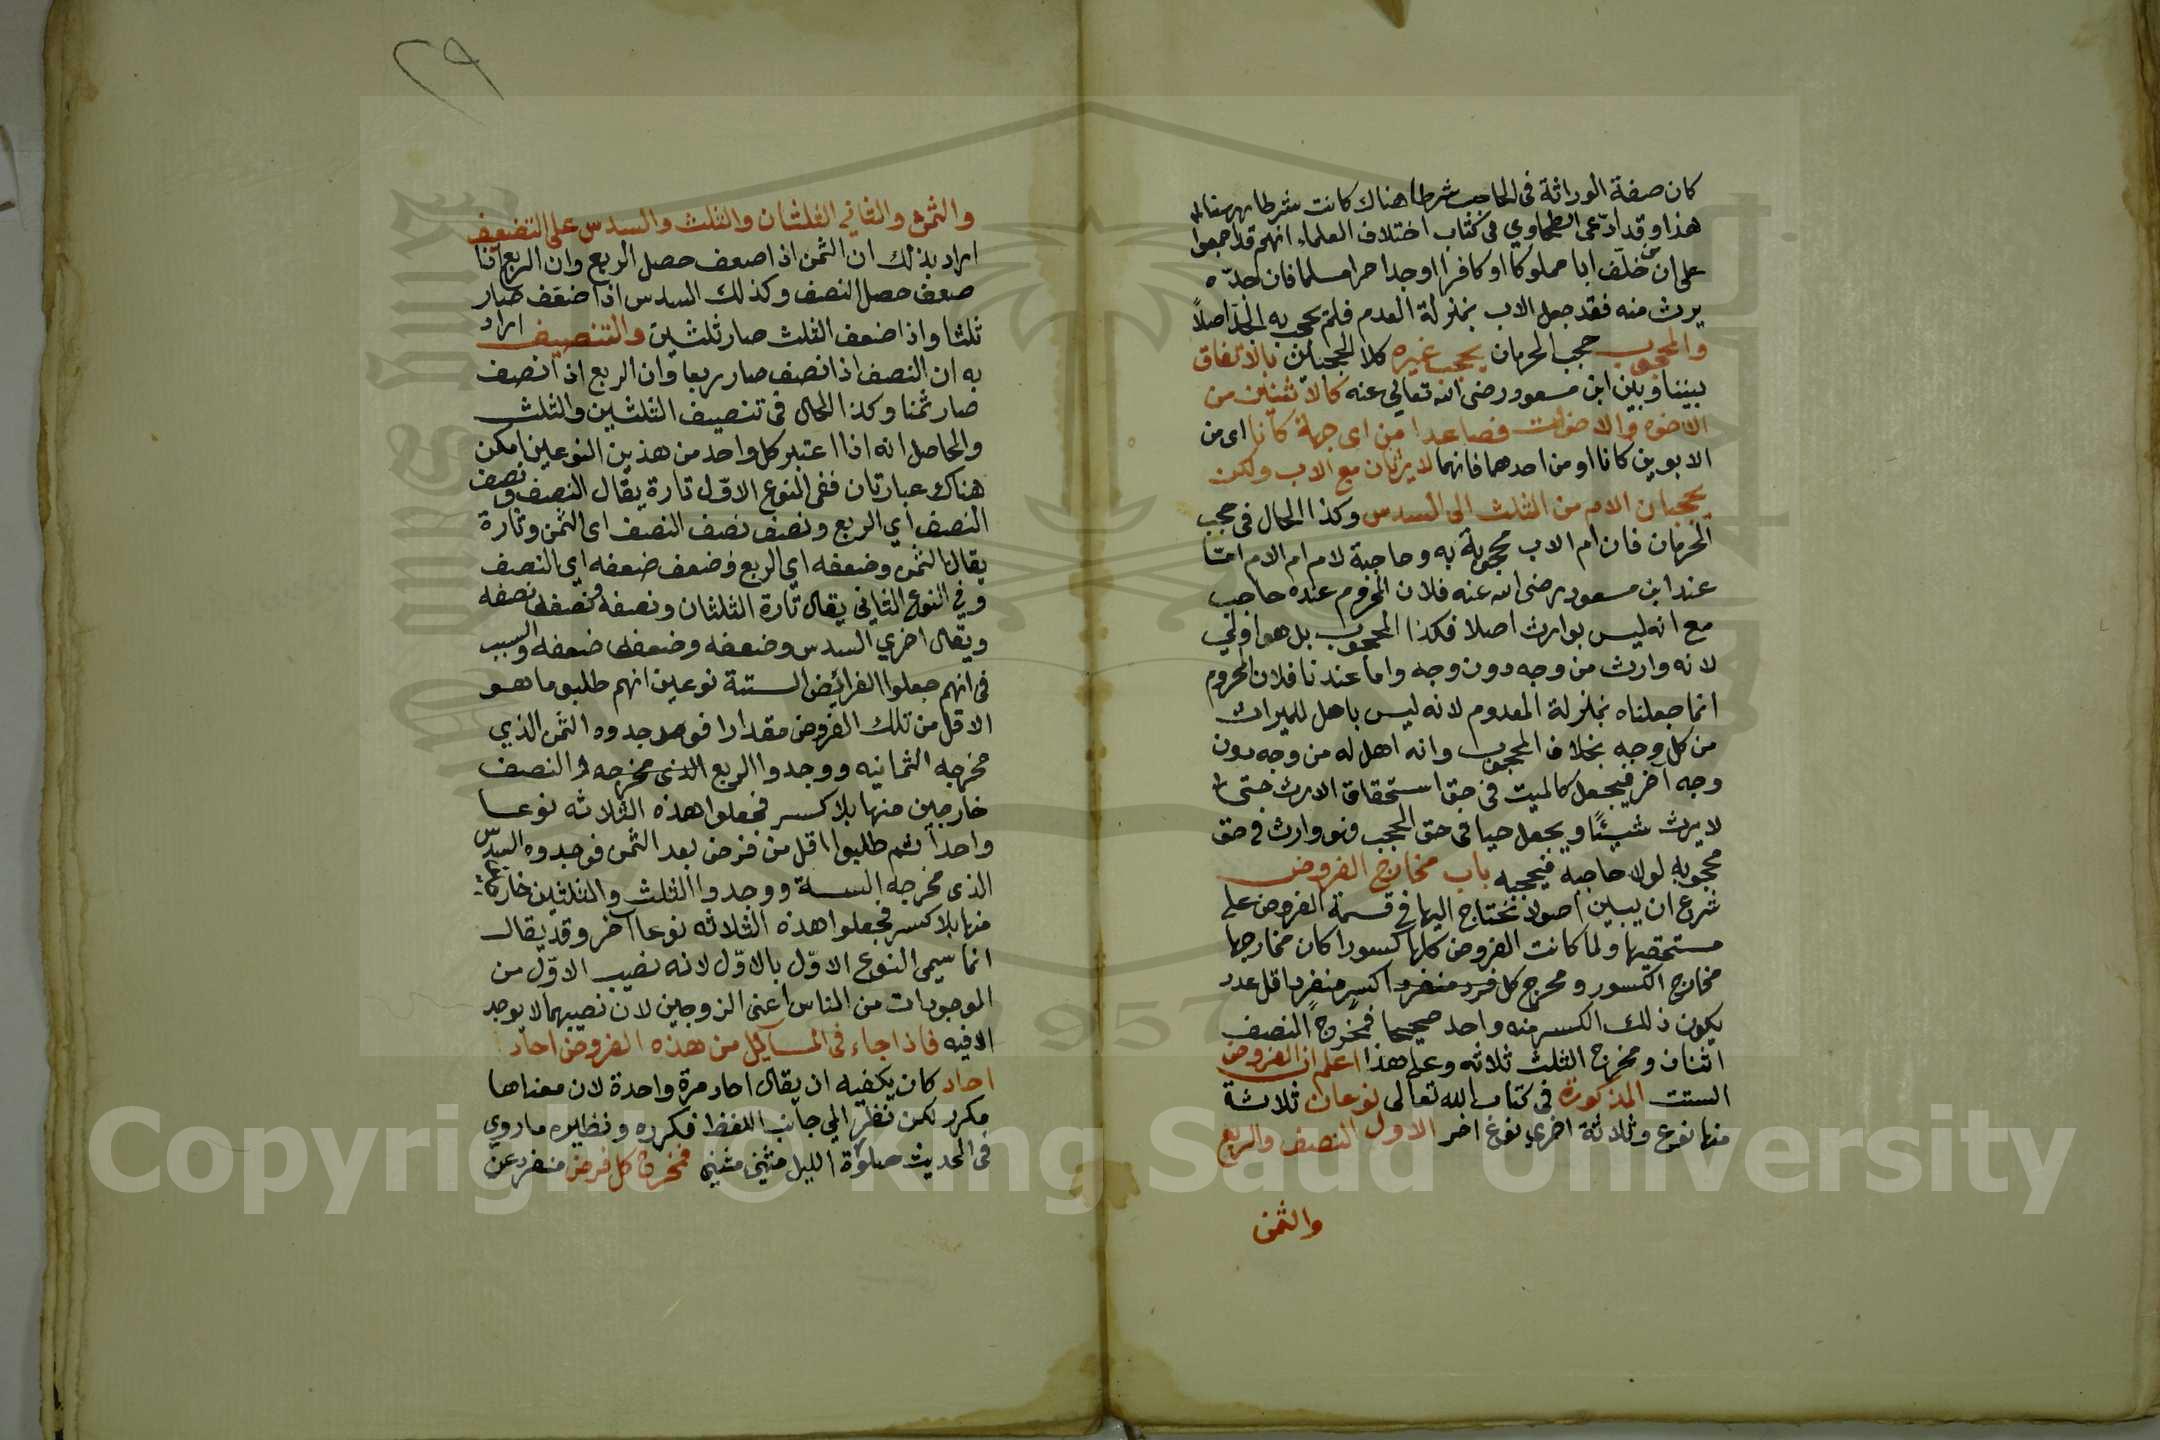 كان صفة الوراثة في الحاجب شرطا هناك كانت شرطا
هذا وقد ادّعى الطحاوي في كتاب اختلاف العلماء انهم قد اجمعوا
على ان من خلّف ابا مملوكا او كافرا او جدا حرا مسلما فان جدّه
يرث منه فقد جعل الاب بمنزلة العدم فلم يحجب به الجدّ اصلاً
والمحجوب حجب الحرمان يحجب غيره كلا الحجبان بالاتفاق
بيننا وبين ابن مسعود رضى الله تعالى عنه كالاثنين من
الاخوة والاخوات فصاعدا من اى جهة كانا اى من
الابوين كانا او من احدهما فانهما لا يرثان مع الاب ولكن
يحجبان الام من الثلث الى السدس وكذا الحال في حجب
الحرمان فان ام الاب محجوبة به وحاجبة لام ام الام امّا
عند ابن مسعود رضى الله عنه فلان المحروم عنده حاجب
مع انه ليس بوارث اصلا فكذا المحجوب بل هو اولي
لانه وارث من وجه دون وجه واما عندنا فلان المحروم
انما جعلناه بمنزلة المعدوم لانه ليس باهل للميراث
من كل وجه بخلاف المحجوب وانه اهل له من وجه دون
وجه آخر فيجعل كالميت في حق استحقاق الارث حتى
لا يرث شيئًا ويجعل حيا في حق الحجب فهو وارث في حق
محجوبه لولا حاجبه فيحجبه باب مخارج الفروض
شرع ان يبين اصولا نحتاج اليها في قسمة الفروض على
مستحقيها ولما كانت الفروض كلها كسورا كان مخارجها
مخارج الكسور ومخرج كل فرد منفرد اكسر منفردا اقل عدد
يكون ذلك الكسر منه واحد صحيحا فمخرج النصف
اثنان ومخرج الثلث ثلاثه وعلى هذا اعلم ان الفروض
الستت المذكورة في كتاب الله تعالى نوعان ثلاثة
منها نوع وثلاثة اخري نوع اخر الاول النصف والربع
والثمن
٢٩
والثمن والثاني الثلثان والثلث والسدس على التضعيف
اراد بذلك ان الثمن اذا ضعف حصل الربع وان الربع اذا
ضعف حصل النصف وكذلك السدس اذا ضعف صار
ثلثا واذا ضعف الثلث صار ثلثين والتنصيف اراد
به ان النصف اذا نصف صار ربعا وان الربع اذا نصف
صار ثمنا وكذا الحال في تنصيف الثلثين والثلث
والحاصل انه اذا اعتبر كل واحد من هذين النوعين امكن
هناك عبارتان ففي النوع الاوّل تارة يقال النصف ونصف
النصف اي الربع ونصف نصف النصف اى الثمن وتارة
يقال الثمن وضعفه اي الربع وضعف ضعفه اي النصف
وفي النوع الثاني يقال تارة الثلثان ونصفه ونصف نصفه
ويقال اخري السدس وضعفه وضعف ضعفه والسبب
في انهم جعلوا الفرائض الستة نوعين انهم طلبو ما هو
الاقل من تلك الفروض مقدارا فوجدوه الثمن الذي
مخرجه الثمانيه ووجدوا الربع الذى مخرجه د النصف
خارجين منها بلا كسر فجعلوا هذه الثلاثه نوعا
واحدا ثم طلبوا اقل من فرض بعد الثمن فوجدوه السدس
الذى مخرجه الستة ووجدوا الثلث والثلثين خارجا
منها بلا كسر فجعلوا هذه الثلاثه نوعا آخر وقد يقال
انما سيمى النوع الاوّل بالاوّل لانه نصيب الاوّل من
الموجودات من الناس اعنى الزوجين لان نصيبهما لا يوجد
الا فيه فاذا جاء في المسائل من هذه الفروض احاد
احاد كان يكفيه ان يقال احاد مرة واحدة لان معناها
مكرر لكن نظر الي جانب اللفظ فكرره ونظيره ما روي
في الحديث صلوة الليل مثنى مثنى فمخرج كل فرض منفرد عن